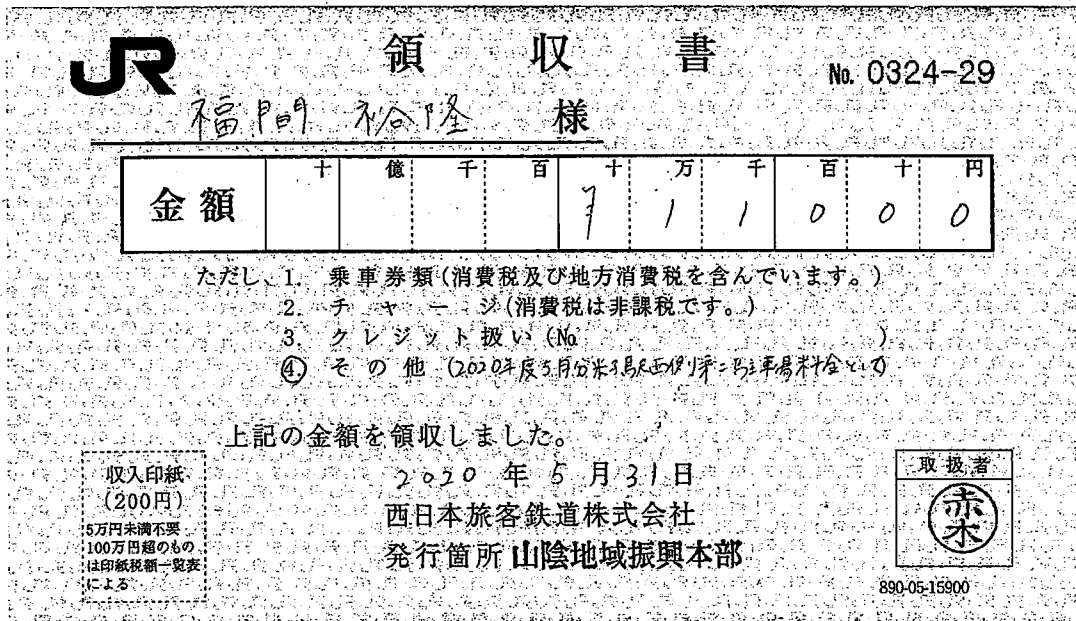 JR
領収書
No. 0324-29
福間 裕隆 様
十 億 千 百 十 万 千 百 十 円
金額 ¥ 1 1 0 0 0
ただし、1. 乗車券類(消費税及び地方消費税を含んでいます。)
2. チャージ(消費税は非課税です。)
3. クレジット扱い(No. )
④ その他(2020年度5月分米子駅西側第二駐車場料金として)
上記の金額を領収しました。
2020年5月31日
西日本旅客鉄道株式会社
発行箇所 山陰地域振興本部
収入印紙
(200円)
5万円未満不要
100万円超のもの
は印紙税額一覧表
による
取扱者
赤木
890-05-15900